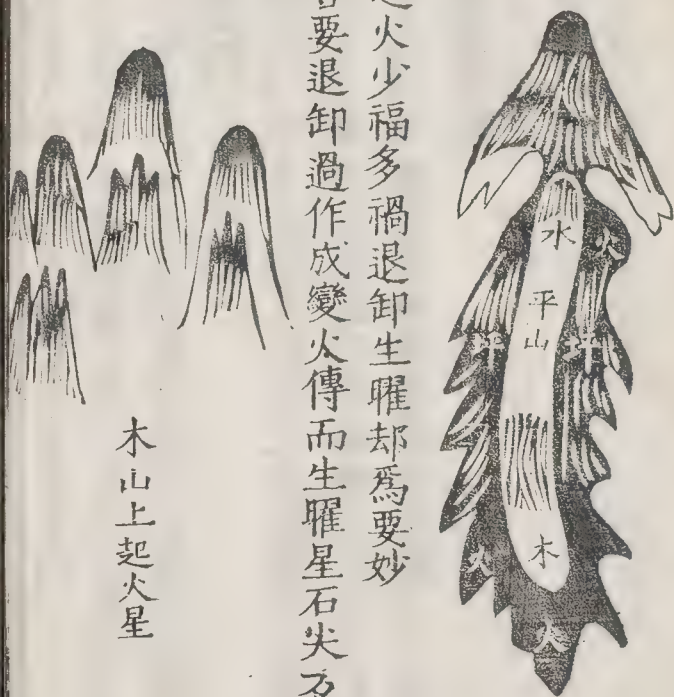 水
火
平山
坪
坪
木
火
火
火少福多禍退卸生曜却爲要妙
要退卸過作成變火傳而生曜星石尖
木山上起火星